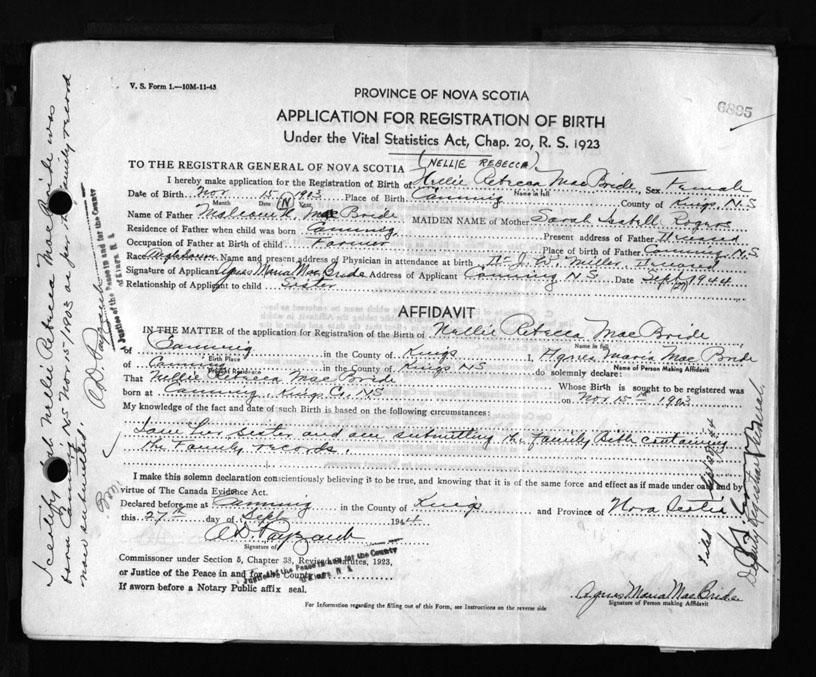 V. S. Form 1.—10M-11-43
6895
PROVINCE OF NOVA SCOTIA
APPLICATION FOR REGISTRATION OF BIRTH
Under the Vital Statistics Act, Chap. 20, R. S. 1923
(NELLIE REBECCA)
TO THE REGISTRAR GENERAL OF NOVA SCOTIA
I hereby make application for the Registration of Birth of Nellie Rebecca MacBride, Sex Female
Name in full
Date of Birth Nov 15 1903 Place of Birth Canning County of Kings, N.S
Month Date Year
Name of Father MacBride MAIDEN NAME of Mother Sarah Isabell Rogers
Residence of Father when child was born Canning Present address of Father
Occupation of Father at Birth of child Farmer Place of Birth of Father Canning N.S.
Race Name and present address of Physician in attendance at birth Dr. J. W. Miller,
Signature of Applicant Agnes Maria MacBride Address of Applicant Canning N.S Date Sept 27 1944
Relationship of Applicant to child Sister
AFFIDAVIT
IN THE MATTER of the application for Registration of the Birth of Nellie Rebecca MacBride
Name in full
of Canning in the County of Kings I, Agnes Maria MacBride
Birth Place Name of Person Making Affidavit
of Canning in the County of Kings NS do solemnly declare:
Present Residence
That Nellie Rebecca MacBride Whose Birth is sought to be registered was
born at Canning, Kings Co, NS on Nov 15th 1903
My knowledge of the fact and date of such Birth is based on the following circumstances:
I am her sister and am submitting the family Bible containing
the family records.
I make this solemn declaration conscientiously believing it to be true, and knowing that it is of the same force and effect as if made under oath and by
virtue of The Canada Evidence Act.
Declared before me at Canning in the County of Kings and Province of Nova Scotia
this 27th day of Sept 1944
Signature of
Commissioner under Section 5, Chapter 38, Revised Statutes, 1923,
or Justice of the Peace in and for the County
A Justice of the Peace in and for the County of Kings N. S.
If sworn before a Notary Public affix seal.
Agnes Maria MacBride
Signature of Person making Affidavit
For Information regarding the filling out of this Form, see Instructions on the reverse side
I certify that Nellie Rebecca MacBride was
born Canning NS Nov 15th 1903 as per family record
now submitted.
A Justice of the Peace in and for the County of Kings N. S.
Deputy Registrar General.